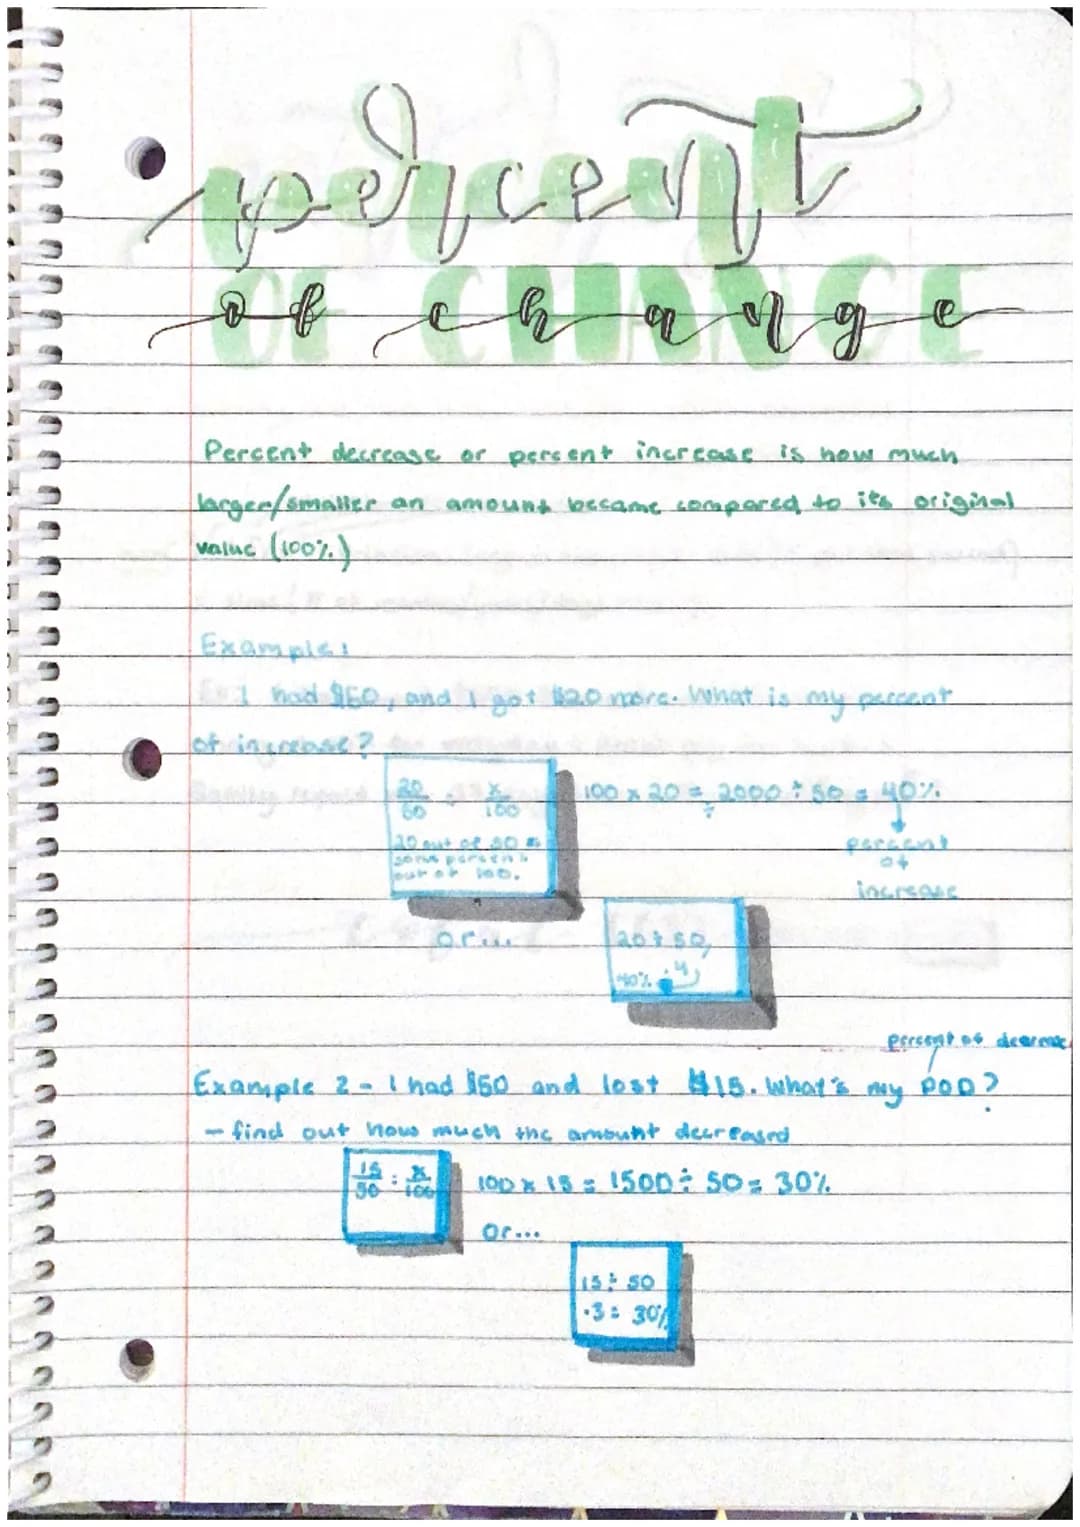 percent
of change
Percent decrease or percent increase is how much
larger/smaller an amount became compared to its original
value (100%)
Example:
I had $50, and I got $20 more. What is my percent
of increase?
20/50 = x/100 100 x 20 = 2000 ÷ 50 = 40%
20 out of 50 =
some percent
out of 100.
percent
of
increase
or... 20 ÷ 50,
40% .4
percent of decrease
Example 2 - I had $50 and lost $15. What's my POD?
- find out how much the amount decreased
15/50 = x/100 100 x 15 = 1500 ÷ 50 = 30%
or...
15 ÷ 50
.3 = 30%